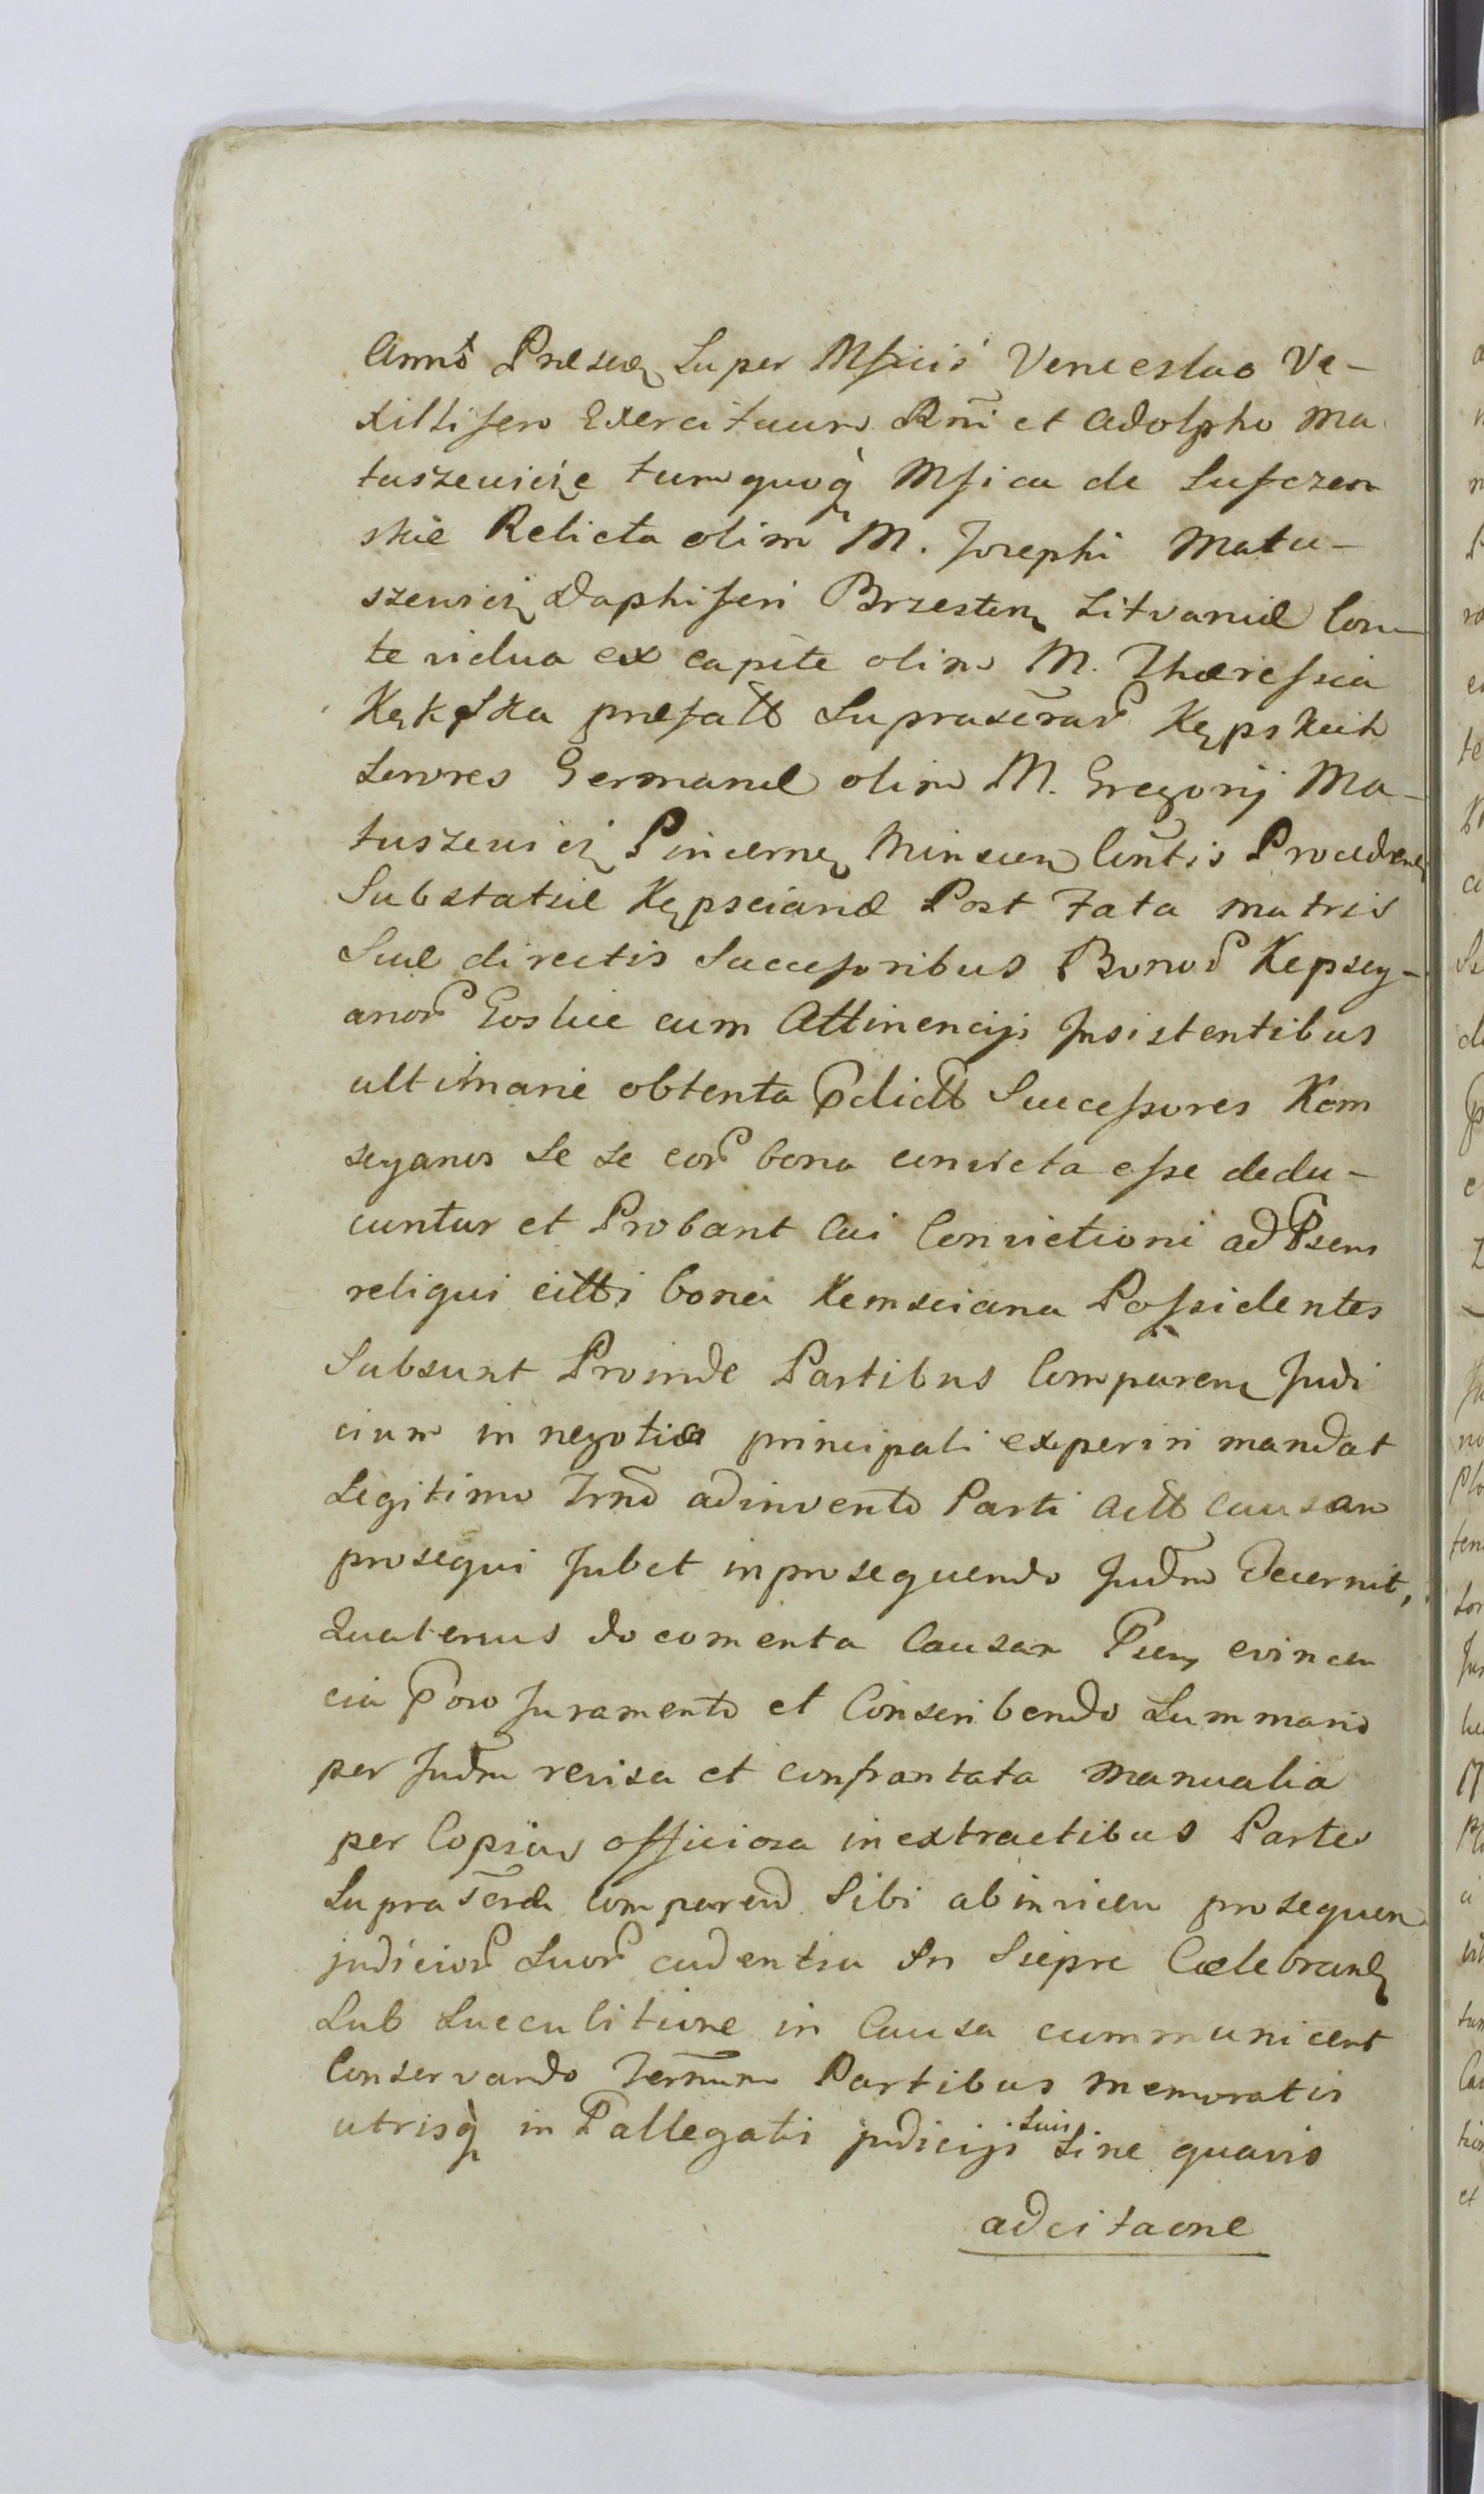 Anno Præsen Super Mficis Venceslao Ve-
xillifero Exercituum Rni et Adolpho Ma
tuszewicze tumquoq Mfica de Sufczen
skie Relicta olim M. Josephi Matu-
szewicz Daphiferi Brzesten Litvaniæ Com
te vidua ex capite olim M. Thæressia
Kękęska præfatt Suprascrār Kępskich
Sorores Germanæ olim M. Gregorij Ma-
tuszewicz Pincerne Minscen Contis Proceden
Substatiæ Kępscianæ Post Fata matris
Suæ directis Successoribus Bonor Kepsey-
anor Goslice cum Attinencijs Insistentibus
ultimarie obtenta Pdictt Successores Kom
seyanos se se cor bona convicta esse dedu-
cuntur et Probant Cui Convictioni ad Psens
reliqui citti bona Kemsciana Possidentes
Subsunt Proinde Partibus Comparen Judi
cium in negotio principali experiri mandat
Legitimo Trno adinvento Parti Actt Causam
prosequi Jubet in prosequendo Judm Decernit,
Quatenus documenta Causam Psen evincen
cia Pore Juramento et Conscribendo Summario
per Judm revisa et confrontata manualia
per Copias officiosa in extractibus Partes
Supra Scrae Comparend Sibi abinvicem prosequen
judicior Suor cadentia In Siepre Cælebrand
Sub Succubitione in Causa communicent
Conservando Termum Partibus memoratis
utrisq in Pallegatis judicijs Suis Sine quavis
adcitaone